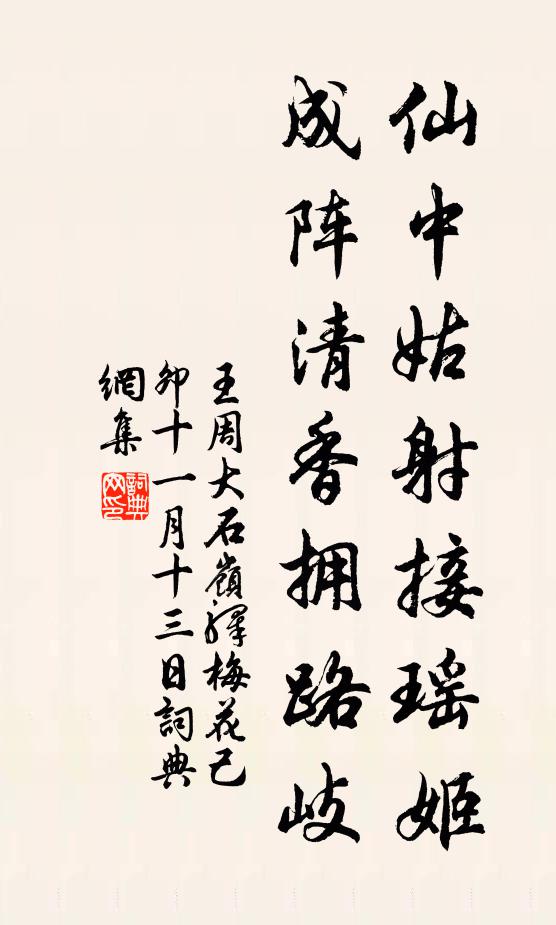 仙中姑射接瑶姬
成阵清香拥路岐
王周大石嶺驛梅花己
卯十一月十三日詞典
網集
詞典网印